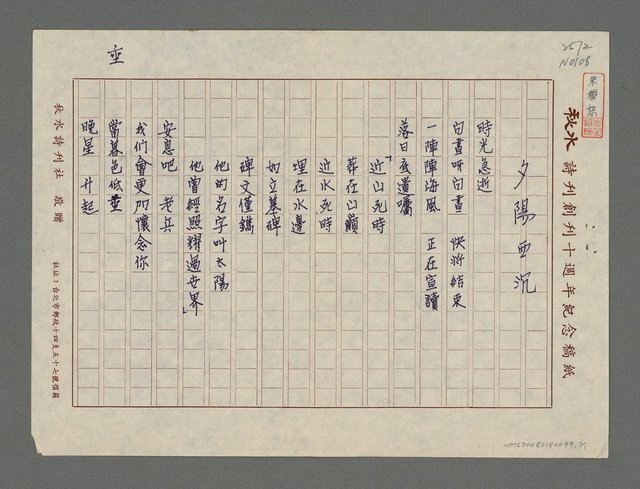 2572
N0108
朱學恕
秋水 詩刊創刊十週年紀念稿紙
夕陽西沉
時光急逝
白晝呀白晝 快將結束
一陣陣海風 正在宣讀
落日底遺囑
「近山死時
葬在山巔
近水死時
埋在水邊
如立墓碑
碑文僅鐫
他的名字叫太陽
他曾經照耀過世界」
安息吧 老兵
我們會更加懷念你
當暮色低垂
晚星 升起
垂
秋水詩刊社 敬贈
社址：台北市郵政十四支五十七號信箱